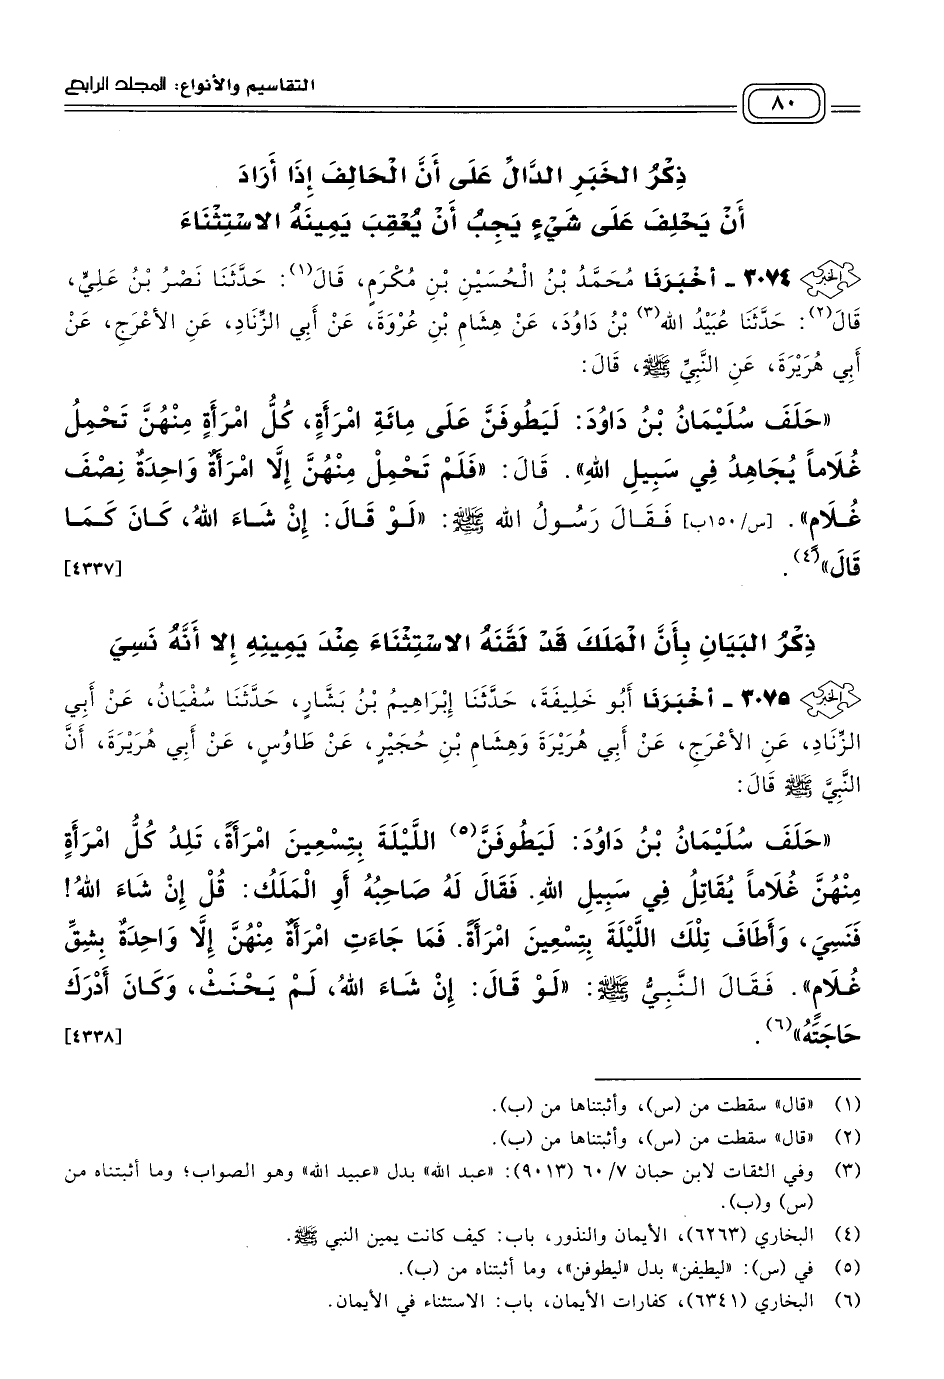 التقاسيم والأنواع: المجلد الرابع
٨٠
ذِكْرُ الخَبَرِ الدَّالِّ عَلَى أَنَّ الْحَالِفَ إِذَا أَرَادَ
أَنْ يَحْلِفَ عَلَى شَيْءٍ يَجِبُ أَنْ يُعْقِبَ يَمِينَهُ الاسْتِثْنَاءَ
الخبر ٣٠٧٤ - أخْبَرَنَا مُحَمَّدُ بْنُ الْحُسَيْنِ بْنِ مُكْرَمٍ، قَالَ(١): حَدَّثَنَا نَصْرُ بْنُ عَلِيٍّ،
قَالَ(٢): حَدَّثَنَا عُبَيْدُ اللهِ(٣) بْنُ دَاوُدَ، عَنْ هِشَامِ بْنِ عُرْوَةَ، عَنْ أَبِي الزِّنَادِ، عَنِ الأَعْرَجِ، عَنْ
أَبِي هُرَيْرَةَ، عَنِ النَّبِيِّ ﷺ، قَالَ:
«حَلَفَ سُلَيْمَانُ بْنُ دَاوُدَ: لَيَطُوفَنَّ عَلَى مِائَةِ امْرَأَةٍ، كُلُّ امْرَأَةٍ مِنْهُنَّ تَحْمِلُ
غُلَاماً يُجَاهِدُ فِي سَبِيلِ اللهِ». قَالَ: «فَلَمْ تَحْمِلْ مِنْهُنَّ إِلَّا امْرَأَةٌ وَاحِدَةٌ نِصْفَ
غُلَامٍ». [س/١٥٠ب] فَقَالَ رَسُولُ اللهِ ﷺ: «لَوْ قَالَ: إِنْ شَاءَ اللهُ، كَانَ كَمَا
قَالَ»(٤). [٤٣٣٧]
ذِكْرُ البَيَانِ بِأَنَّ الْمَلَكَ قَدْ لَقَّنَهُ الاسْتِثْنَاءَ عِنْدَ يَمِينِهِ إِلا أَنَّهُ نَسِيَ
الخبر ٣٠٧٥ - أخْبَرَنَا أَبُو خَلِيفَةَ، حَدَّثَنَا إِبْرَاهِيمُ بْنُ بَشَّارٍ، حَدَّثَنَا سُفْيَانُ، عَنْ أَبِي
الزِّنَادِ، عَنِ الأَعْرَجِ، عَنْ أَبِي هُرَيْرَةَ وَهِشَامِ بْنِ حُجَيْرٍ، عَنْ طَاوُسٍ، عَنْ أَبِي هُرَيْرَةَ، أَنَّ
النَّبِيَّ ﷺ قَالَ:
«حَلَفَ سُلَيْمَانُ بْنُ دَاوُدَ: لَيَطُوفَنَّ(٥) اللَّيْلَةَ بِتِسْعِينَ امْرَأَةً، تَلِدُ كُلُّ امْرَأَةٍ
مِنْهُنَّ غُلَاماً يُقَاتِلُ فِي سَبِيلِ اللهِ. فَقَالَ لَهُ صَاحِبُهُ أَوِ الْمَلَكُ: قُلْ إِنْ شَاءَ اللهُ!
فَنَسِيَ، وَأَطَافَ تِلْكَ اللَّيْلَةَ بِتِسْعِينَ امْرَأَةً. فَمَا جَاءَتِ امْرَأَةٌ مِنْهُنَّ إِلَّا وَاحِدَةٌ بِشِقِّ
غُلَامٍ». فَقَالَ النَّبِيُّ ﷺ: «لَوْ قَالَ: إِنْ شَاءَ اللهُ، لَمْ يَحْنَثْ، وَكَانَ أَدْرَكَ
حَاجَتَهُ»(٦). [٤٣٣٨]
(١) «قال» سقطت من (س)، وأثبتناها من (ب).
(٢) «قال» سقطت من (س)، وأثبتناها من (ب).
(٣) وفي الثقات لابن حبان ٧/ ٦٠ (٩٠١٣): «عبد الله» بدل «عبيد الله» وهو الصواب؛ وما أثبتناه من
(س) و(ب).
(٤) البخاري (٦٢٦٣)، الأيمان والنذور، باب: كيف كانت يمين النبي ﷺ.
(٥) في (س): «ليطيفن» بدل «ليطوفن»، وما أثبتناه من (ب).
(٦) البخاري (٦٣٤١)، كفارات الأيمان، باب: الاستثناء في الأيمان.